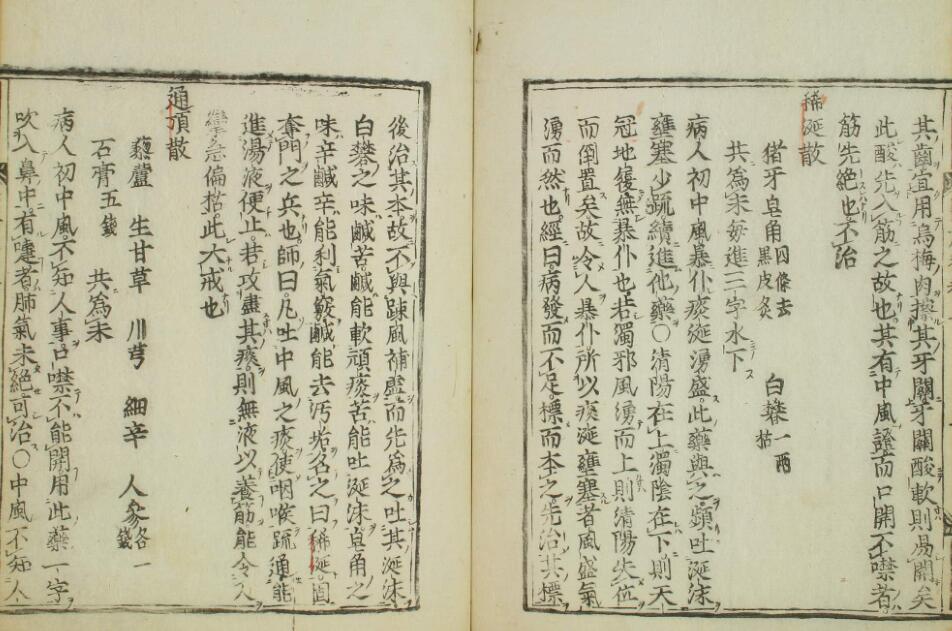 其齒宜用烏梅肉擦其牙關牙關酸軟則易開矣
此酸先入筋之故也其有中風證而口開不噤者
筋先絕也不治
稀涎散
猪牙皂角四條去黑皮炙 白礬一兩枯
共為末每進三字水下
病人初中風暴仆痰涎湧盛此藥與之頻吐涎沫
壅塞少疏續進他藥〇清陽在上濁陰在下則天
冠地履無暴仆也若濁邪風湧而上則清陽失位
而倒置矣故令人暴仆所以痰涎壅塞者風盛氣
湧而然也經曰病發而不足標而本之先治其標
後治其本故不與踈風補虛而先為之吐其涎沫
白礬之味鹹苦鹹能軟頑痰苦能吐涎沫皂角之
味辛鹹辛能利氣竅鹹能去污垢名之曰稀涎固
奪門之兵也師曰凡吐中風之痰使咽喉疏通能
進湯液便止若攻盡其痰則無液以養筋能令人
攣急偏枯此大戒也
通頂散
藜蘆 生甘草 川芎 細辛 人參各一錢
石膏五錢 共為末
病人初中風不知人事口噤不能開用此藥一字
吹入鼻中有嚏者肺氣未絕可治〇中風不知人